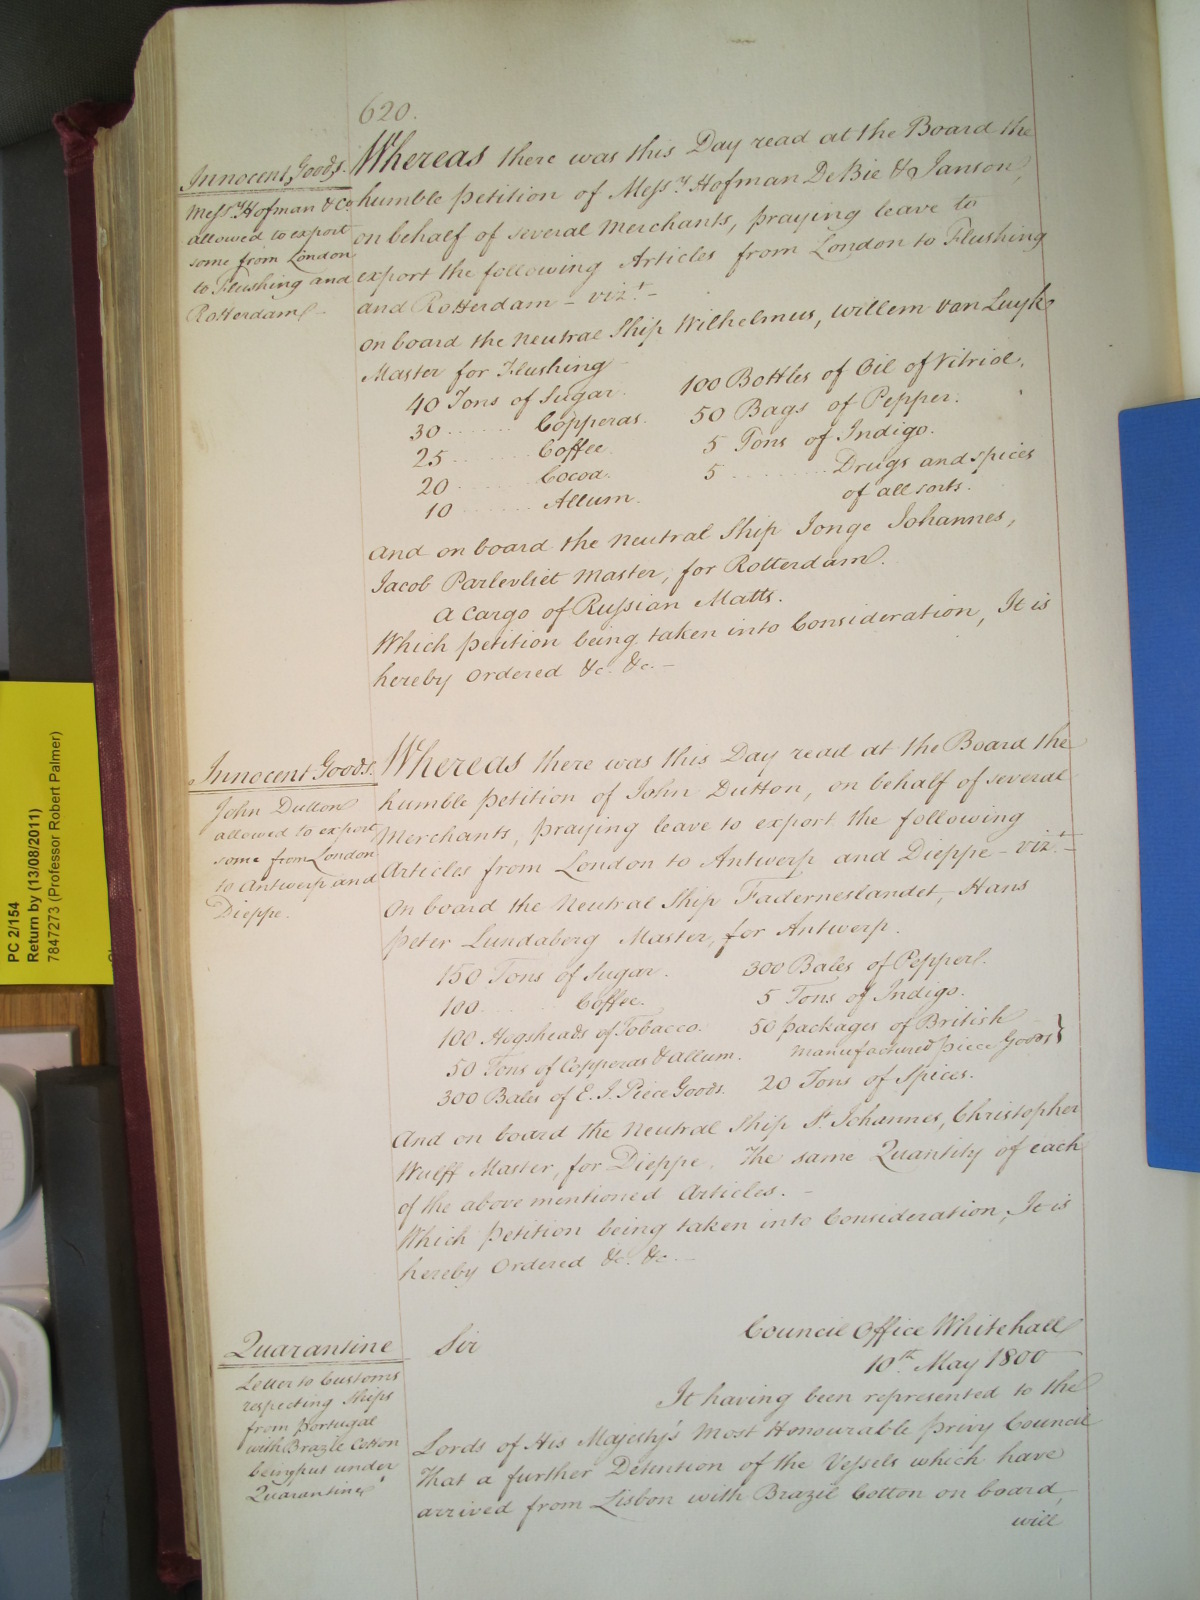 620.
Innocent Goods.
Mess.rs Hofman & Co.
allowed to export
some from London
to Flushing and
Rotterdam.
Whereas there was this Day read at the Board the
humble petition of Mess.rs Hofman De Bie & Janson,
on behalf of several Merchants, praying leave to
export the following Articles from London to Flushing
and Rotterdam - viz.t -
on board the Neutral Ship Wilhelmus, Willem van Luyk
Master for Flushing
40 Tons of Sugar. 100 Bottles of Oil of Vitriol.
30 ...... Copperas. 50 Bags of Pepper.
25 ...... Coffee. 5 Tons of Indigo.
20 ...... Cocoa. 5 ........ Drugs and spices
10 ...... Allum. of all sorts.
And on board the Neutral Ship Jonge Johannes,
Jacob Parlevliet Master, for Rotterdam.
a Cargo of Russian Matts.
Which petition being taken into Consideration, It is
hereby Ordered &c. &c. -
Innocent Goods.
John Dutton
allowed to export
some from London
to Antwerp and
Dieppe.
Whereas there was this Day read at the Board the
humble petition of John Dutton, on behalf of several
Merchants, praying leave to export the following
Articles from London to Antwerp and Dieppe - viz.t -
On board the Neutral Ship Faderneslandet, Hans
Peter Lundaberg Master, for Antwerp.
150 Tons of Sugar. 300 Bales of Pepper.
100 ...... Coffee. 5 Tons of Indigo.
100 Hogsheads of Tobacco. 50 packages of British
50 Tons of Copperas & allum. Manufactured piece Goods }
300 Bales of E. I. Piece Goods. 20 Tons of Spices.
And on board the Neutral Ship St. Johannes, Christopher
Wulff Master, for Dieppe. The same Quantity of each
of the above mentioned Articles. -
Which Petition being taken into Consideration, It is
hereby Ordered &c. &c. -
Quarantine
Letter to Customs
respecting Ships
from Portugal
with Brazle Cotton
being put under
Quarantine
Sir
Council Office Whitehall
10th May 1800
It having been represented to the
Lords of His Majesty's Most Honourable Privy Council
That a further Detention of the Vessels which have
arrived from Lisbon with Brazil Cotton on board,
will
PC 2/154
Return by (13/08/2011)
7847273 (Professor Robert Palmer)